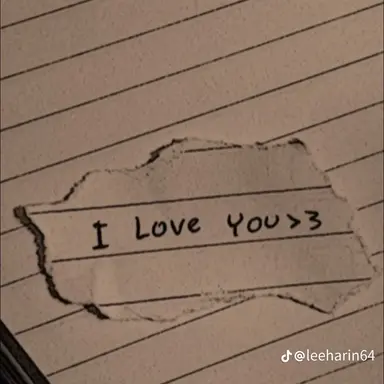 I Love You>3
@leeharin64